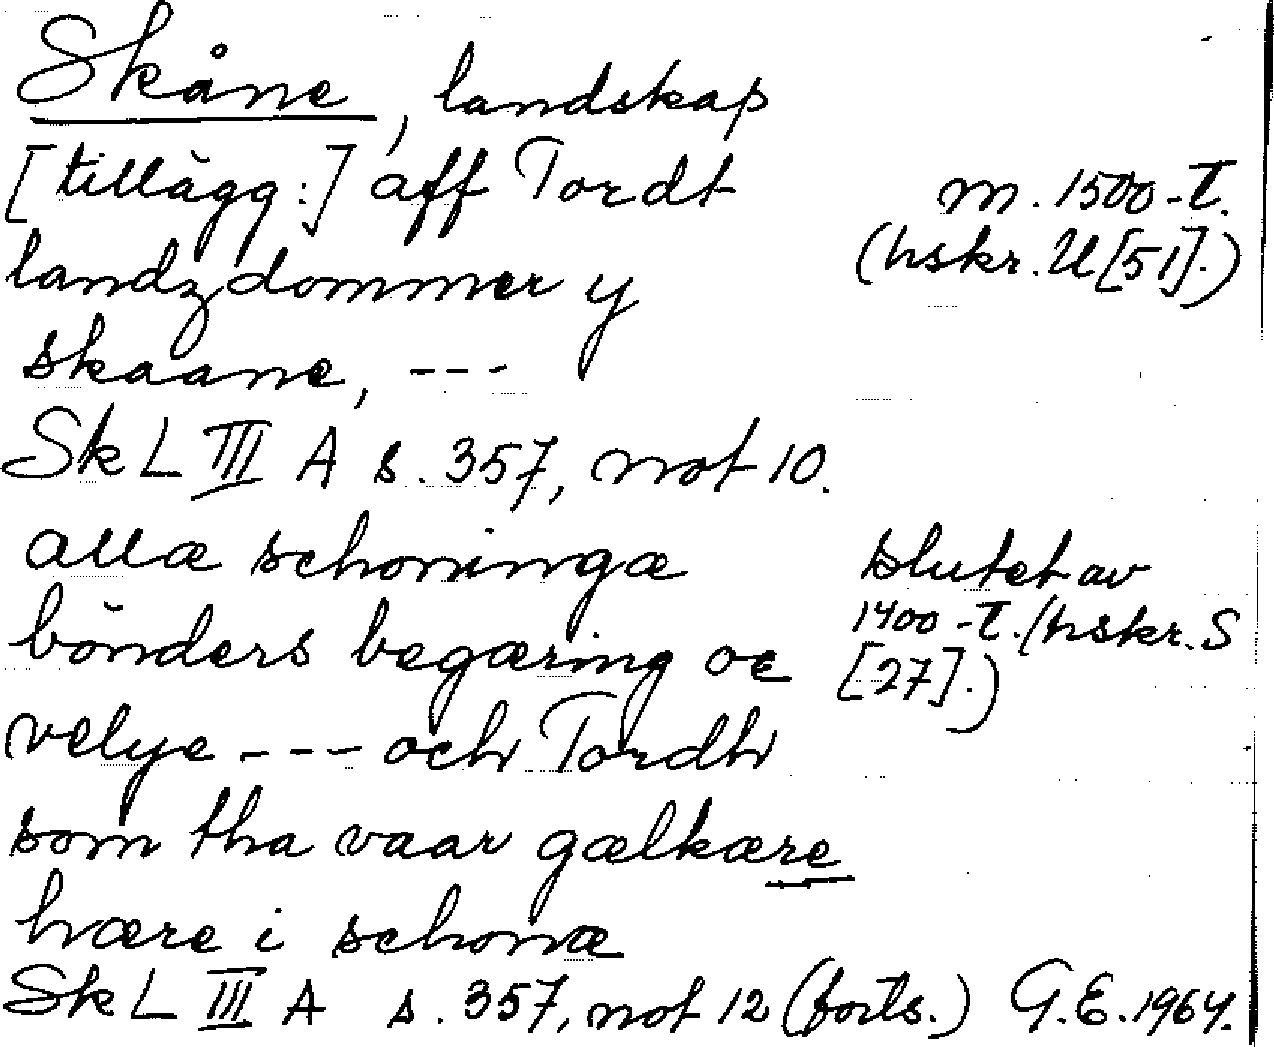 Skåne, landskap
[tillägg:] aff Tordt
m. 1500-t.
landzdommer y
(hskr. U [51].)
skaane, ---
Sk L III A s. 357, not 10.
allæ schoningæ
slutet av
bönders begæring oc
1400-t. (hskr. S
[27].)
velye --- och Tordh
som tha vaar gælkære
hære i schonæ
Sk L III A s. 357, not 12 (forts.) G.E. 1964.